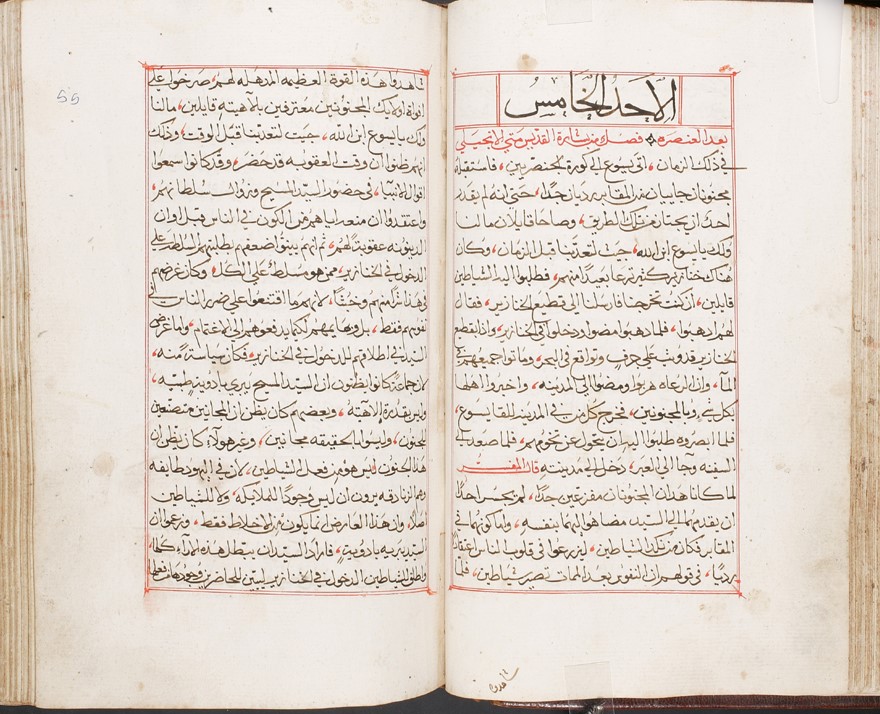 الاحد الخامس
بعد العنصره فصل من بشارة القديس متي الانجيلي
في ذلك الزمان، اتي يسوع الي كورة الجرجسيين، فاستقبله
مجنونان جاييان من المقابر رديان جدًا، حتي انه لم يقدر
احد ان يجتاز من تلك الطريق، وصاحا قايلان ما لنا
ولك يا يسوع ابن الله، جيت لتعذبنا قبل الزمان، وكان
هناك خنازير كثير ترعا بعيدًا منهم، فطلبوا اليه الشياطين
قايلين، ان كنت تخرجنا فارسلنا الي قطيع الخنازير، فقال
لهم اذهبوا، فلما ذهبوا مضوا ودخلوا في الخنازير، واذا بقطيع
الخنازير قد وثب علي جرف وتواقع في البحر، وماتوا جميعهم في
الماء، وان الرعاه هربوا ومضوا الي المدينه، واخبروا اهلها
بكل شي، وبالمجنونين، فخرج كل من في المدينه للقا يسوع،
فلما ابصروه طلبوا اليه ان يتحول عن تخومهم، فلما صعد الي
السفنه وجا الي العبر، دخل الي مدينته قال المفسر
لما كانا هذان المجنونان مفزعين جدًا، لم يجسر احدًا
ان يقدمهم الي السيد، مضا هو اليهما بنفسه، واما كونهما في
المقابر فكان من تلك الشياطين، ليزرعوا في قلوب الناس اعتقادًا
رديًا، في قولهم ان النفوس بعد الممات تصير شياطين، فلما
شاهدوا
شاهدوا هذه القوة العظيمه المذهله لهم، صرخوا علي
افواه اوليك المجنونين معترفين بالاهيته قايلين، ما لنا
ولك يا يسوع ابن الله، جيت لتعذبنا قبل الوقت، وذلك
انهم ظنوا ان وقت العقوبه قد حضر، وقد كانوا سمعوا
اقوال الانبيا، في حضور السيد المسيح ونزول سلطانهم،
واعتقدوا ان منعه اياهم من الكون في الناس قبل اوان
الدينونه عقوبةً لهم، ثم انهم بينوا ضعفهم بطلبتهم السلطه علي
الدخول في الخنازير، ممن هو مسلط علي الكل، وكان غرضهم
في هذا شرًا منهم وخبثًا، لانهم ما اقتنعوا علي ضرر الناس في
نفوسهم فقط، بل وبهايمهم لكيما يدفعوهم الي الاغتمام، واما غرض
السيد في اطلاقهم للدخول في الخنازير، فكان سياسة منه،
لان جماعةً كانوا يظنون ان السيد المسيح يبري بادوية طبيه،
وليس بقدرة الاهيه، وبعضهم كان يظن ان المجانين متصنعين
للجنون، وليسوا بالحقيقه مجانين، وغير هولاء كان يظن ان
هذا الجنون ليس هو من فعل الشياطين، لان في اليهود طايفه
وهم الزنادقه يرون ان ليس وجودًا للملايكه، ولا للشياطين
اصلًا، وان هذا العارض انما يكون من الاخلاط فقط، وزعموا ان
السيد يبريه بادويةٍ، فاراد السيد ان يبطل هذه الاراء كلها،
واطلق للشياطين الدخول في الخنازير ليبين للحاضرين وجودها وفعلها
55